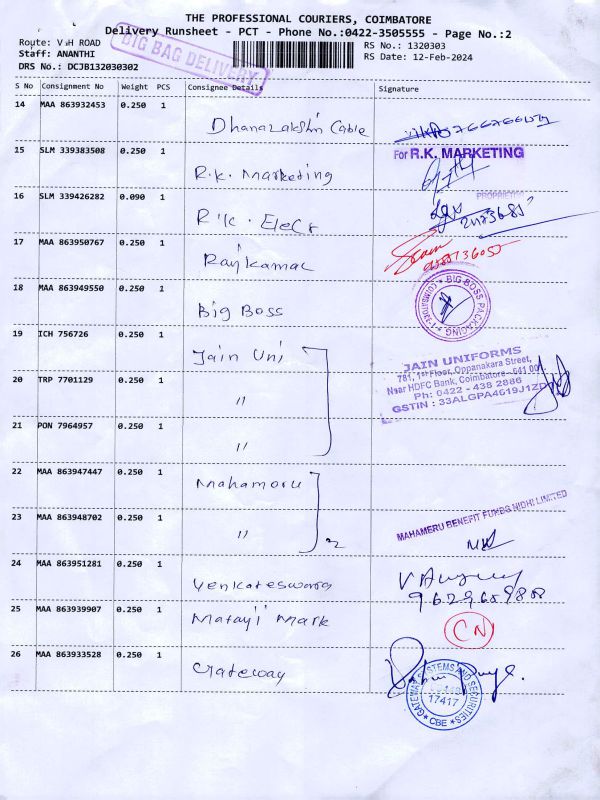 THE PROFESSIONAL COURIERS, COIMBATORE
Delivery Runsheet - PCT - Phone No.:0422-3505555 - Page No.:2
Route: V H ROAD
RS No.: 1320303
Staff: ANANTHI
RS Date: 12-Feb-2024
DRS No.: DCJB132030302
BIG BAG DELIVERY
S No Consignment No Weight PCS Consignee Details Signature
14 MAA 863932453 0.250 1 Dhanalakshin Cable
15 SLM 339383508 0.250 1 R.K. Marketing
For R.K. MARKETING
PROPRIETOR
16 SLM 339426282 0.090 1 R.K. Elect
17 MAA 863950767 0.250 1 Rajkamal
18 MAA 863949550 0.250 1 Big Boss
BIG BOSS PACKAGING COIMBATORE-1
19 ICH 756726 0.250 1 Jain Uni
JAIN UNIFORMS
781, 1st Floor, Oppanakara Street,
Near HDFC Bank, Coimbatore-641 001.
Ph: 0422 - 438 2886
GSTIN : 33ALGPA4619J1ZD
20 TRP 7701129 0.250 1 "
21 PON 7964957 0.250 1 "
22 MAA 863947447 0.250 1 Mahameru
23 MAA 863948702 0.250 1 " 2
MAHAMERU BENEFIT FUNDS NIDHI LIMITED
24 MAA 863951281 0.250 1 Venkateswara
9629659888
25 MAA 863939907 0.250 1 Matayji Mark
CN
26 MAA 863933528 0.250 1 Gateway
GATEWAY SYSTEMS AND SECURITIES
17417
CBE